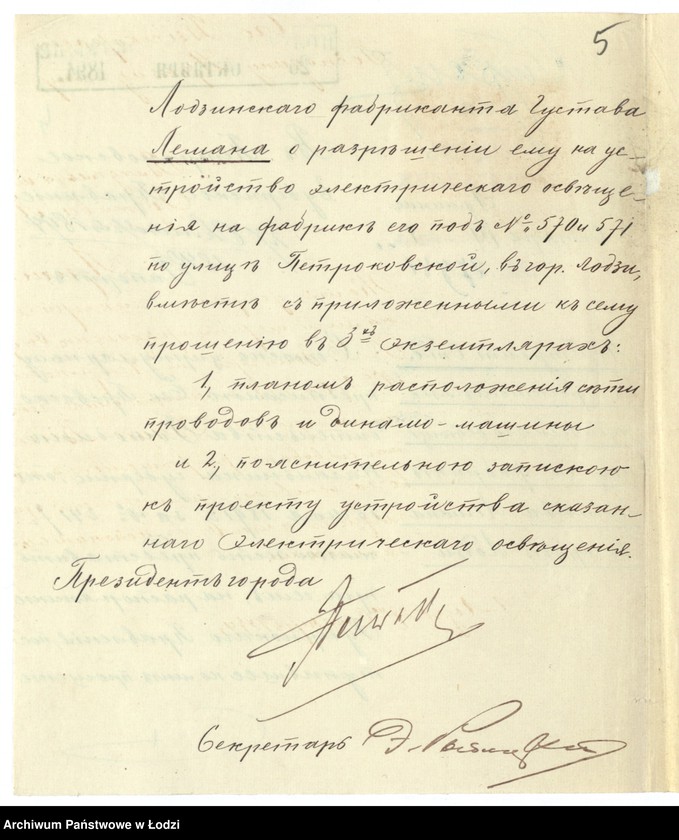 5
Лодзинскаго фабриканта Густава
Лемана о разрѣшеніи ему на ус-
тройство электрическаго освѣще-
нія на фабрикѣ его подъ № 570 и 571
по улицѣ Петроковской, въ гор. Лодзи,
вмѣстѣ съ приложенными къ сему
прошенію въ 3хъ экземплярахъ:
1, планомъ расположенія сѣти
проводовъ и динамо-машины
и 2, пояснительною запискою
къ проекту устройства сказан-
наго электрическаго освѣщенія.
Президентъ города
Секретарь
Archiwum Państwowe w Łodzi